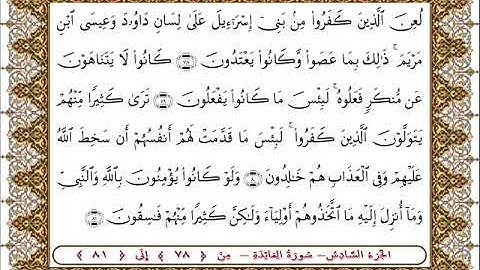 لُعِنَ ٱلَّذِينَ كَفَرُوا۟ مِنۢ بَنِىٓ إِسْرَٰٓءِيلَ عَلَىٰ لِسَانِ دَاوُۥدَ وَعِيسَى ٱبْنِ
مَرْيَمَ ۚ ذَٰلِكَ بِمَا عَصَوا۟ وَّكَانُوا۟ يَعْتَدُونَ ۝٧٨ كَانُوا۟ لَا يَتَنَاهَوْنَ
عَن مُّنكَرٍ فَعَلُوهُ ۚ لَبِئْسَ مَا كَانُوا۟ يَفْعَلُونَ ۝٧٩ تَرَىٰ كَثِيرًا مِّنْهُمْ
يَتَوَلَّوْنَ ٱلَّذِينَ كَفَرُوا۟ ۚ لَبِئْسَ مَا قَدَّمَتْ لَهُمْ أَنفُسُهُمْ أَن سَخِطَ ٱللَّهُ
عَلَيْهِمْ وَفِى ٱلْعَذَابِ هُمْ خَٰلِدُونَ ۝٨٠ وَلَوْ كَانُوا۟ يُؤْمِنُونَ بِٱللَّهِ وَٱلنَّبِىِّ
وَمَآ أُنزِلَ إِلَيْهِ مَا ٱتَّخَذُوهُمْ أَوْلِيَآءَ وَلَٰكِنَّ كَثِيرًا مِّنْهُمْ فَٰسِقُونَ ۝٨١
الجزء السَّادِس – سُورَةُ المَائِدَةِ – مِنْ ﴿ ٧٨ ﴾ إِلَى ﴿ ٨١ ﴾